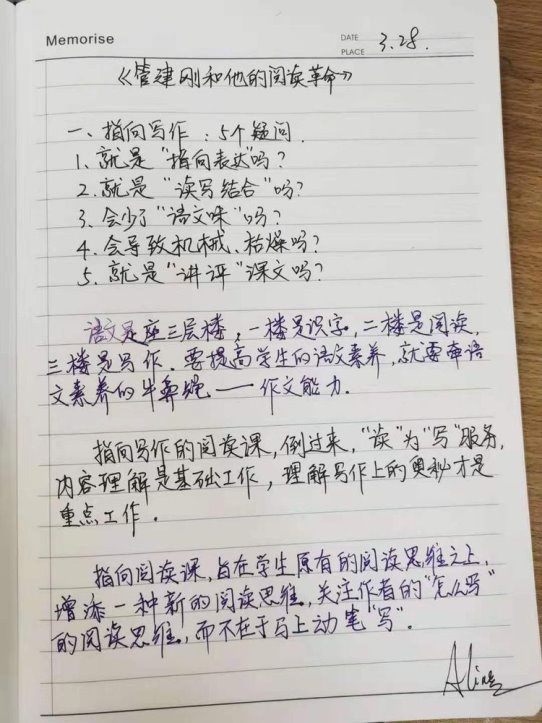 Memorise
DATE
PLACE 3.28.
《管建刚和他的阅读革命》
一、指向写作：5个疑问.
1. 就是“指向表达”吗？
2. 就是“读写结合”吗？
3. 会少了“语文味”吗？
4. 会导致机械、枯燥吗？
5. 就是“讲评”课文吗？
语文是座三层楼，一楼是识字，二楼是阅读，
三楼是写作．要提高学生的语文素养，就要牵语
文素养的牛鼻绳——作文能力．
指向写作的阅读课，倒过来，“读”为“写”服务，
内容理解是基础工作，理解写作上的奥秘才是
重点工作．
指向阅读课，旨在学生原有的阅读思维之上，
增添一种新的阅读思维，关注作者的“怎么写”
的阅读思维，而不在于马上动笔“写”．